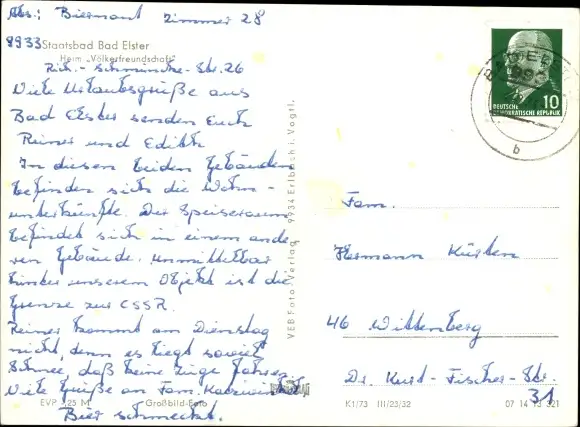 Abs.: Biermont Zimmer 28
9933 Staatsbad Bad Elster
Heim „Völkerfreundschaft"
Rich.-Schmincke-Str. 26
Viele Urlaubsgrüße aus
Bad Elster senden Euch
Reiner und Edith
In diesen beiden Gebäuden
befinden sich die Wohn-
unterkünfte. Der Speiseraum
befindet sich in einem ande
ren Gebäude. Unmittelbar
hinter unserem Objekt ist die
Grenze zur CSSR.
Reiner kommt am Dienstag
nicht, denn es liegt soviel
Schnee, daß keine Züge fahren.
Viele Grüße an Fam.
Bier schmeckt.
EVP -,25 M Großbild-Foto
VEB Foto-Verlag 9934 Erlbach i. Vogtl.
DEUTSCHE
DEMOKRATISCHE REPUBLIK
10
b
Fam.
Hermann Kürsten
46 Wittenberg
Dr. Kurt-Fischer-Str.
31
K1/73 III/23/32 07 14 13 321